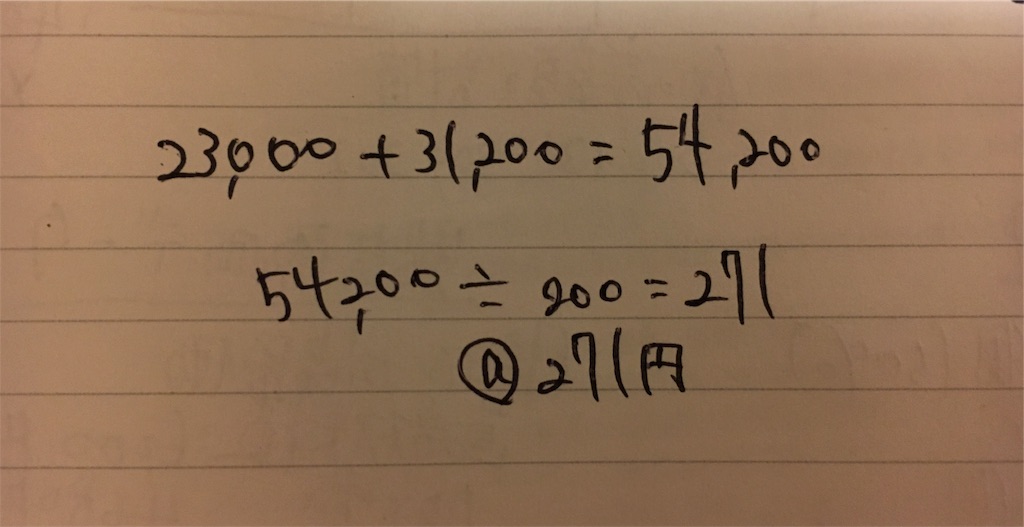 23,000 + 31,200 = 54,200
54,200 ÷ 200 = 271
ⓐ 271円